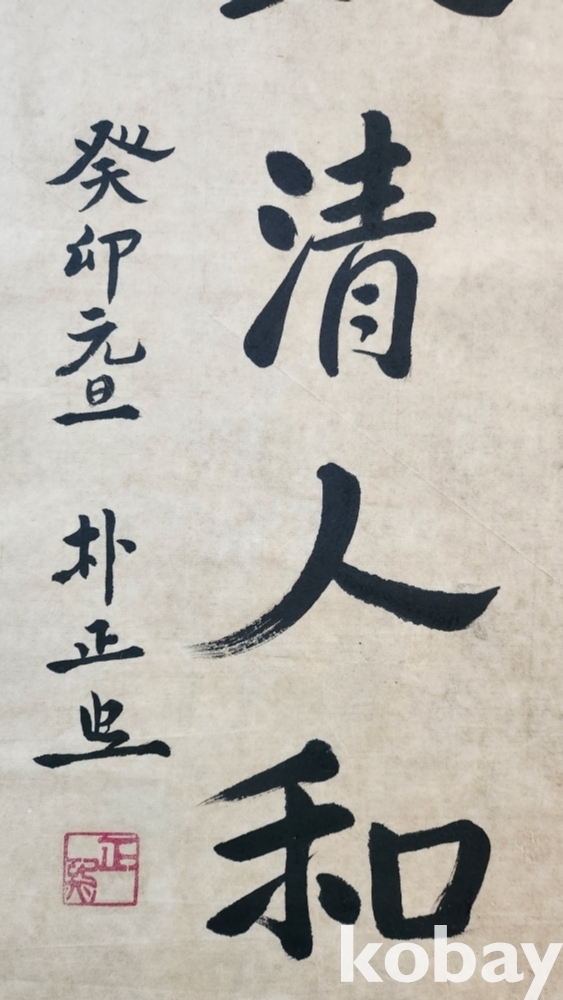 清人和
癸卯元旦 朴正熙
正熙
kobay